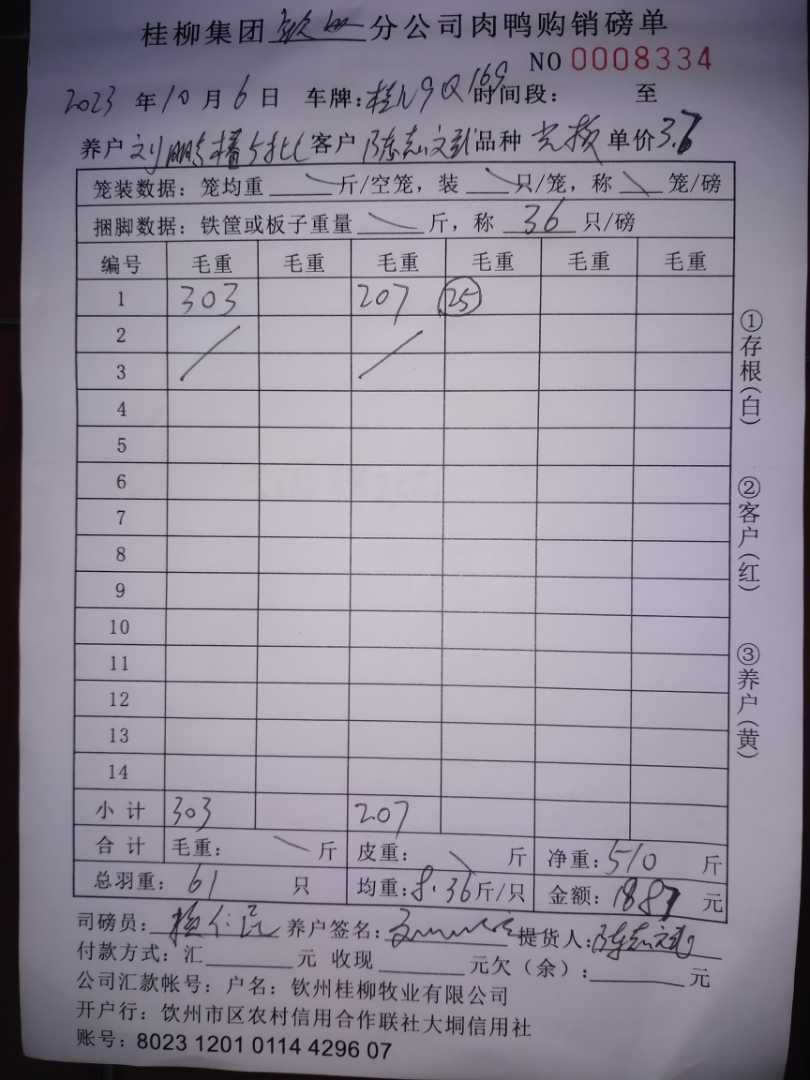 桂柳集团钦州分公司肉鸭购销磅单
NO 0008334
2023 年 10 月 6 日 车牌:桂N9Q169 时间段: 至
养户 刘鹏 客户 陈志斌 品种 单价 3.7
笼装数据: 笼均重 斤/空笼, 装 只/笼, 称 笼/磅
捆脚数据: 铁筐或板子重量 斤, 称 36 只/磅
编号 毛重 毛重 毛重 毛重 毛重 毛重
1 303 207 25
2
3
4
5
6
7
8
9
10
11
12
13
14
小计 303 207
合计 毛重: 斤 皮重: 斤 净重: 510 斤
总羽重: 61 只 均重: 8.36 斤/只 金额: 1887 元
司磅员: 养户签名: 提货人: 陈志斌
付款方式: 汇 元 收现 元欠(余): 元
公司汇款帐号: 户名: 钦州桂柳牧业有限公司
开户行: 饮州市区农村信用合作联社大垌信用社
账号: 8023 1201 0114 4296 07
①存根(白)
②客户(红)
③养户(黄)